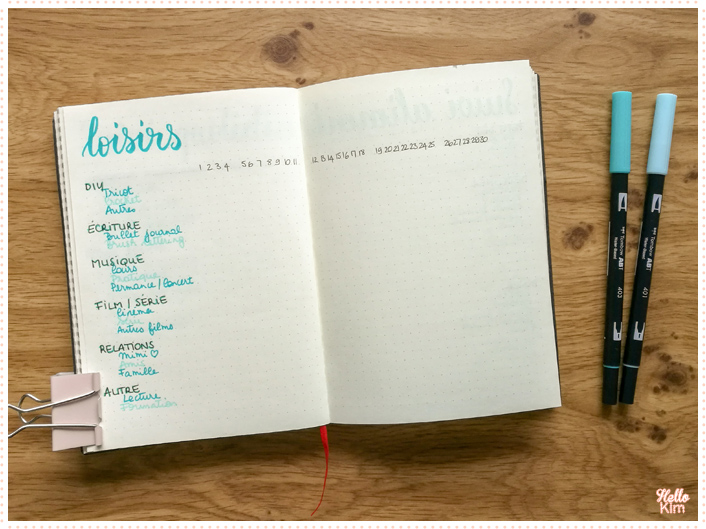 loisirs
1 2 3 4 5 6 7 8 9 10 11 12 13 14 15 16 17 18 19 20 21 22 23 24 25 26 27 28 29 30
DIY
Tricot
Crochet
Autres
ÉCRITURE
Bullet journal
Brush lettering
MUSIQUE
Cours
Pratique
Permance/Concert
FILM / SÉRIE
Cinema
Autres films
RELATIONS
Mimi ♡
Amis
Famille
AUTRE
Lecture
Formation
Tombow ABT
402
Tombow ABT
401
Hello
Kim